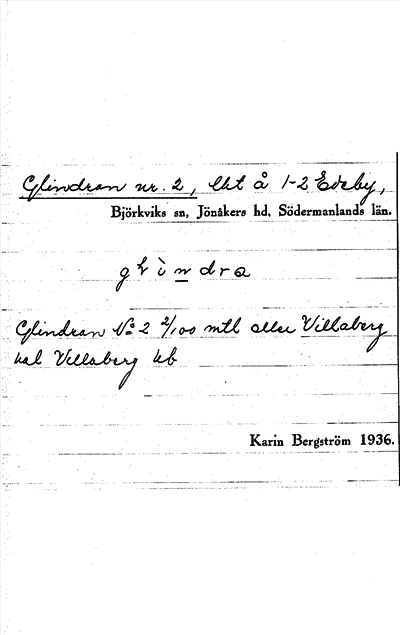 Glindran nr. 2, lht å 1-2 Edeby,
Björkviks sn, Jönåkers hd, Södermanlands län.
Glindran No 2 2/100 mtl eller Villaberg
kal Villaberg kb
Karin Bergström 1936.